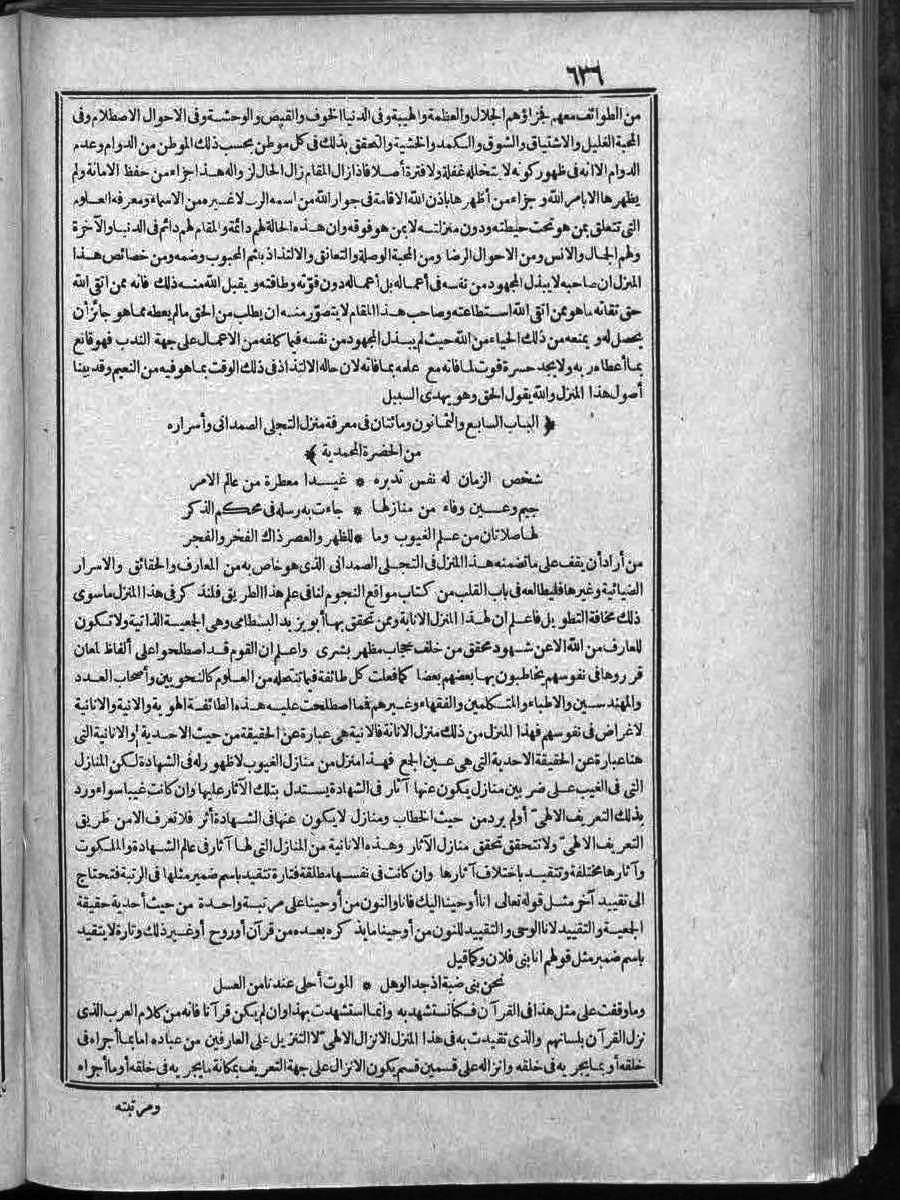 ٦٣٦
من الطوائف معهم فجزاؤهم الجلال والعظمة والهيبة وفى الدنيا الخوف والقبض والوحشة وفى الاحوال الاصطلام وفى
المحبة الغليل والاشتياق والشوق والكمد والخشية والتحقق بذلك فى كل موطن بحسب ذلك الموطن من الدوام وعدم
الدوام الاانه فى ظهور كونه لا يتخلله غفلة ولا فترة أصلا فاذا زال المقام زال الحال لزواله هذا جزاء من حفظ الامانة ولم
يظهرها الا بامر الله وجزاء من أظهرها باذن الله الاقامة فى جوار الله من اسمه الرب لا غيره من الاسماء ومعرفه العلوم
التى تتعلق بمن هو تحت حيطته ودون منزلته لا بمن هو فوقه وان هذه الحالة لهم دائمة والمقام لهم دائم فى الدنيا والآخرة
ولهم الجمال والانس ومن الاحوال الرضا ومن المحبة الوصلة والتعانق والالتذاذ بلثم المحبوب وضمه ومن خصائص هذا
المنزل ان صاحبه لا يبذل المجهود من نفسه فى أعماله بل أعماله دون قوته وطاقته ويقبل الله منه ذلك فانه ممن اتقى الله
حق تقاته ما هو ممن اتقى الله استطاعته وصاحب هذا المقام لا يتصوّر منه ان يطلب من الحق ما لم يعطه مما هو جائز أن
يحصل له ويمنعه من ذلك الحياء من الله حيث لم يبذل المجهود من نفسه فيما كلفه من الاعمال على جهة الندب فهو قانع
بما أعطاه ربه ولا يجد حسرة فوت لما فاته مع علمه بما فاته لان حاله الالتذاذ فى ذلك الوقت بما هو فيه من النعيم وقد بينا
أصول هذا المنزل والله يقول الحق وهو يهدى السبيل
﴿ الباب السابع والثمانون ومائتان فى معرفة منزل التجلى الصمدانى وأسراره
من الحضرة المحمدية ﴾
شخص الزمان له نفس تدبره * غيدا معطرة من عالم الامر
جيم وعين وفاء من منازلها * جاءت به رسله فى محكم الذكر
لها صلاتان من علم الغيوب وما * للظهر والعصر ذاك الفخر والفجر
من أراد أن يقف على ما تضمنه هذا المنزل فى التجلى الصمدانى الذى هو خاص به من المعارف والحقائق والاسرار
الضيائية وغيرها فليطالعه فى باب القلب من كتاب مواقع النجوم لنا فى علم هذا الطريق فلنذكر فى هذا المنزل ما سوى
ذلك مخافة التطويل فاعلم ان لهذا المنزل الانابة وممن تحقق بها أبو يزيد البسطامى وهى الجمعية الذاتية ولا تكون
للعارف من الله الا عن شهود محقق من خلف حجاب مظهر بشرى واعلم ان القوم قد اصطلحوا على ألفاظ لمعان
قرروها فى نفوسهم يخاطبون بها بعضهم بعضا كما فعلت كل طائفة فيما تنتحله من العلوم كالنحويين وأصحاب العدد
والمهندسين والاطباء والمتكلمين والفقهاء وغيرهم فمما اصطلحت عليه هذه الطائفة الهوية والانية والانانية
لاغراض فى نفوسهم فهذا المنزل من ذلك منزل الانانة فالانية هى عبارة عن الحقيقة من حيث الاحدية والانانية التى
هنا عبارة عن الحقيقة الاحدية التى هى عين الجمع فهذا منزل من منازل الغيوب لا ظهور له فى الشهادة لكن المنازل
التى فى الغيب على ضربين منازل يكون عنها آثار فى الشهادة يستدل بتلك الآثار عليها وان كانت غيبا سواء ورد
بذلك التعريف الالهىّ أو لم يرد من حيث الخطاب ومنازل لا يكون عنها فى الشهادة أثر فلا تعرف الا من طريق
التعريف الالهىّ ولا تتحقق تحقق منازل الآثار وهذه الانانية من المنازل التى لها آثار فى عالم الشهادة والملكوت
وآثارها مختلفة وتتقيد باختلاف آثارها وان كانت فى نفسها مطلقة فتارة تتقيد باسم ضمير مثلها فى الرتبة فتحتاج
الى تقييد آخر مثل قوله تعالى انا أوحينا اليك فانا والنون من أوحينا على مرتبة واحدة من حيث أحدية حقيقة
الجمعية والتقييد لانا الوحى والتقييد للنون من أوحينا ما يذكره بعده من قرآن أو روح أو غير ذلك وتارة لا يتقيد
باسم ضمير مثل قولهم انا بنى فلان وكما قيل
نحن بنى ضبة اذ جد الوهل * الموت أحلى عندنا من العسل
وما وقفت على مثل هذا فى القرآن فكنا نستشهد به وانما استشهدت بهذا وان لم يكن قرآنا فانه من كلام العرب الذى
نزل القرآن بلسانهم والذى تقيدت به فى هذا المنزل الانزال الالهىّ لا التنزيل على العارفين من عباده اما بما أجراه فى
خلقه أو بما يجريه فى خلقه وانزاله على قسمين قسم يكون الانزال على جهة التعريف بمكانة ما يجريه فى خلقه أو ما أجراه
ومرتبته